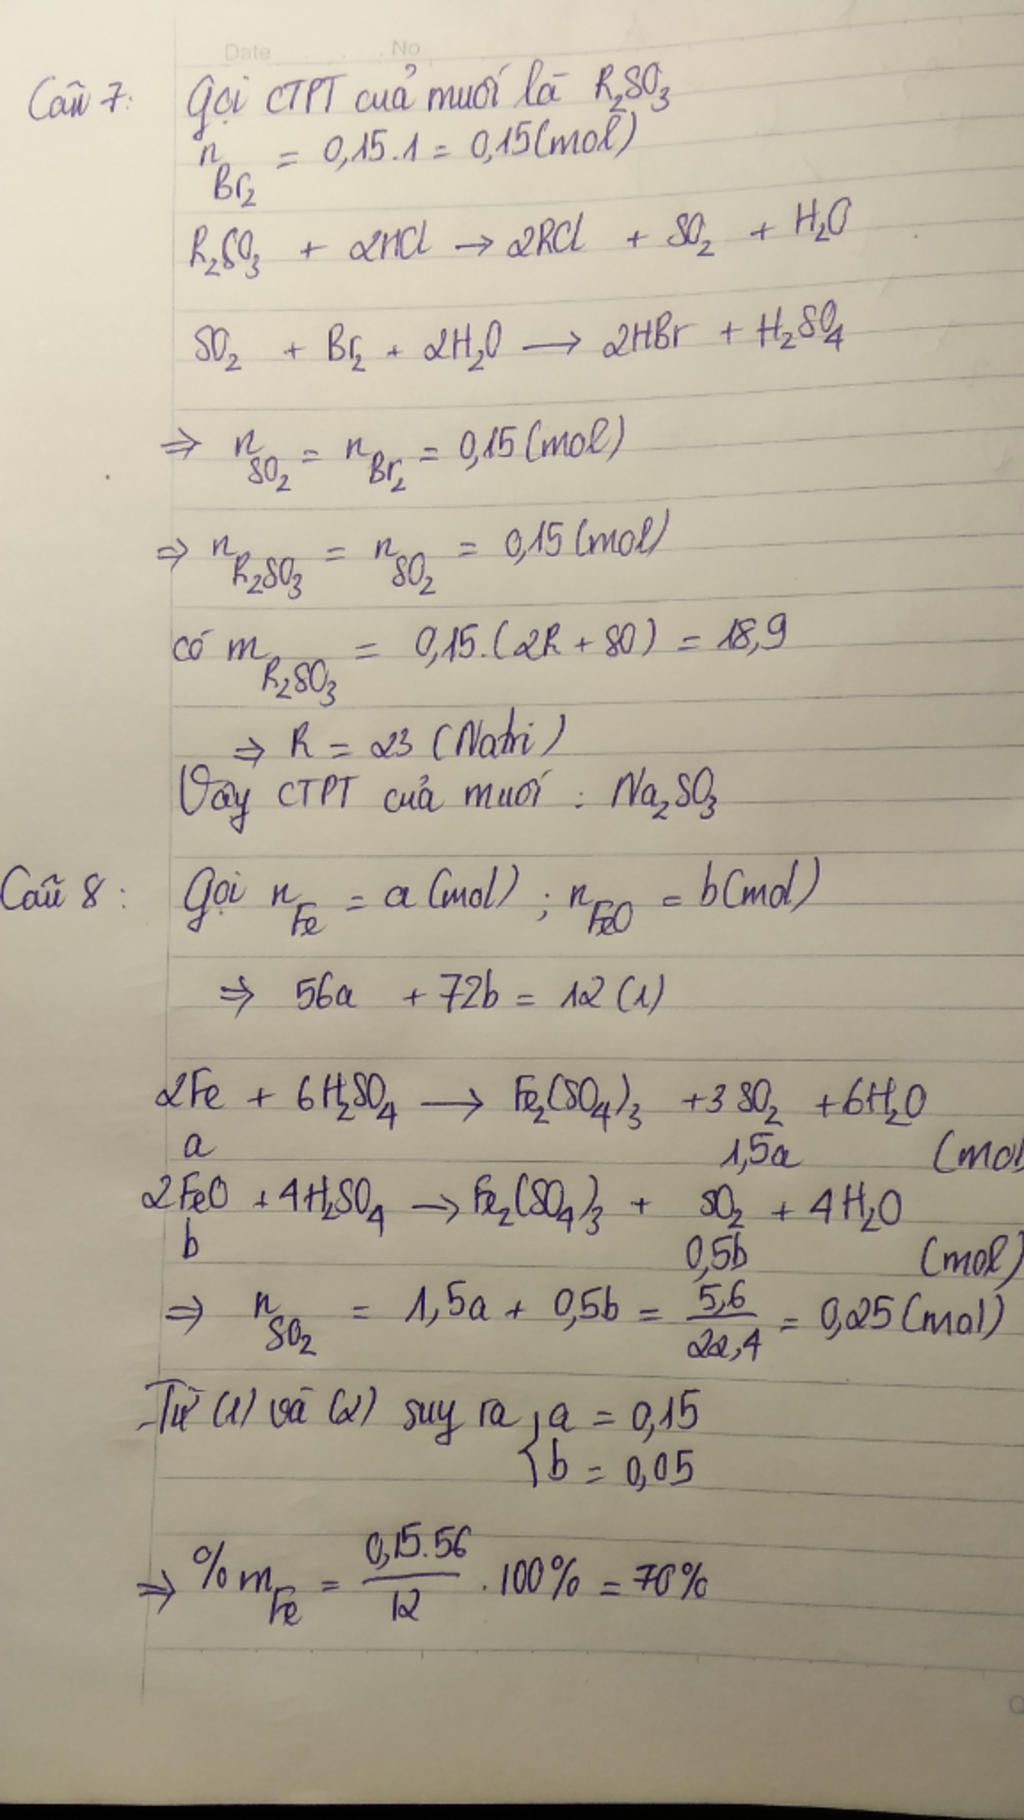 Date No
Câu 7: Gọi CTPT cuả muối là R₂SO₃
n Br₂ = 0,15.1 = 0,15(mol)
R₂SO₃ + 2HCl → 2RCl + SO₂ + H₂O
SO₂ + Br₂ + 2H₂O → 2HBr + H₂SO₄
⇒ n SO₂ = n Br₂ = 0,15(mol)
⇒ n R₂SO₃ = n SO₂ = 0,15(mol)
có m R₂SO₃ = 0,15.(2R + 80) = 18,9
⇒ R = 23 (Natri)
Vậy CTPT cuả muối : Na₂SO₃
Câu 8: Gọi n Fe = a(mol) ; n FeO = b(mol)
⇒ 56a + 72b = 12 (1)
2Fe + 6H₂SO₄ → Fe₂(SO₄)₃ + 3SO₂ + 6H₂O
a 1,5a (mol
2FeO + 4H₂SO₄ → Fe₂(SO₄)₃ + SO₂ + 4H₂O
b 0,5b (mol)
⇒ n SO₂ = 1,5a + 0,5b = 5,6/22,4 = 0,25(mol)
Từ (1) và (2) suy ra { a = 0,15
b = 0,05
⇒ %m Fe = 0,15.56/12 . 100% = 70%